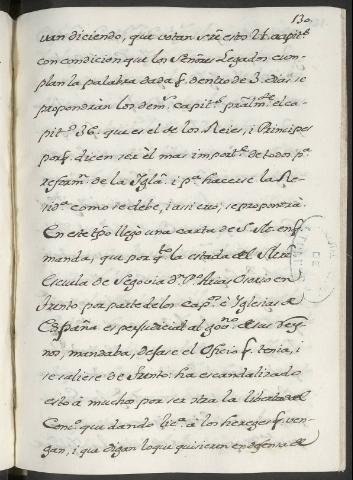 130
van diciendo, que votan sere esto 21. capit.s
con condicion que los Señores Legados cum-
plan la palabra dada q. dentro de 3. dias se
propondràn los dem.s capit.s el ca-
pit.o 36. que es el de los Reies, i Principes
porq. dicen ser èl mas import.e de todos p.a
reform.n de la Igl.a i p.a hacerse la Re-
sid.a como se debe, i asi creo, se proponrà.
En este tpõ llegò una carta de S. M. en q.
manda, que por q.to la estada del Mtro
Escuela de Segovia D.n P.o Arias, Diario en
Trento por parte de los Cap.s è Iglesias de
España es perjudicial al gov.no de sus Rey-
nos, mandaba, dejase el Oficio q. tenia, i
se saliese de Trento: ha escandalizado
esto à muchos por ser vtra la libertad del
Conc.o que dando lic.a à los hereges q. ven-
gan, i que digan lo que quisieren en defensa de